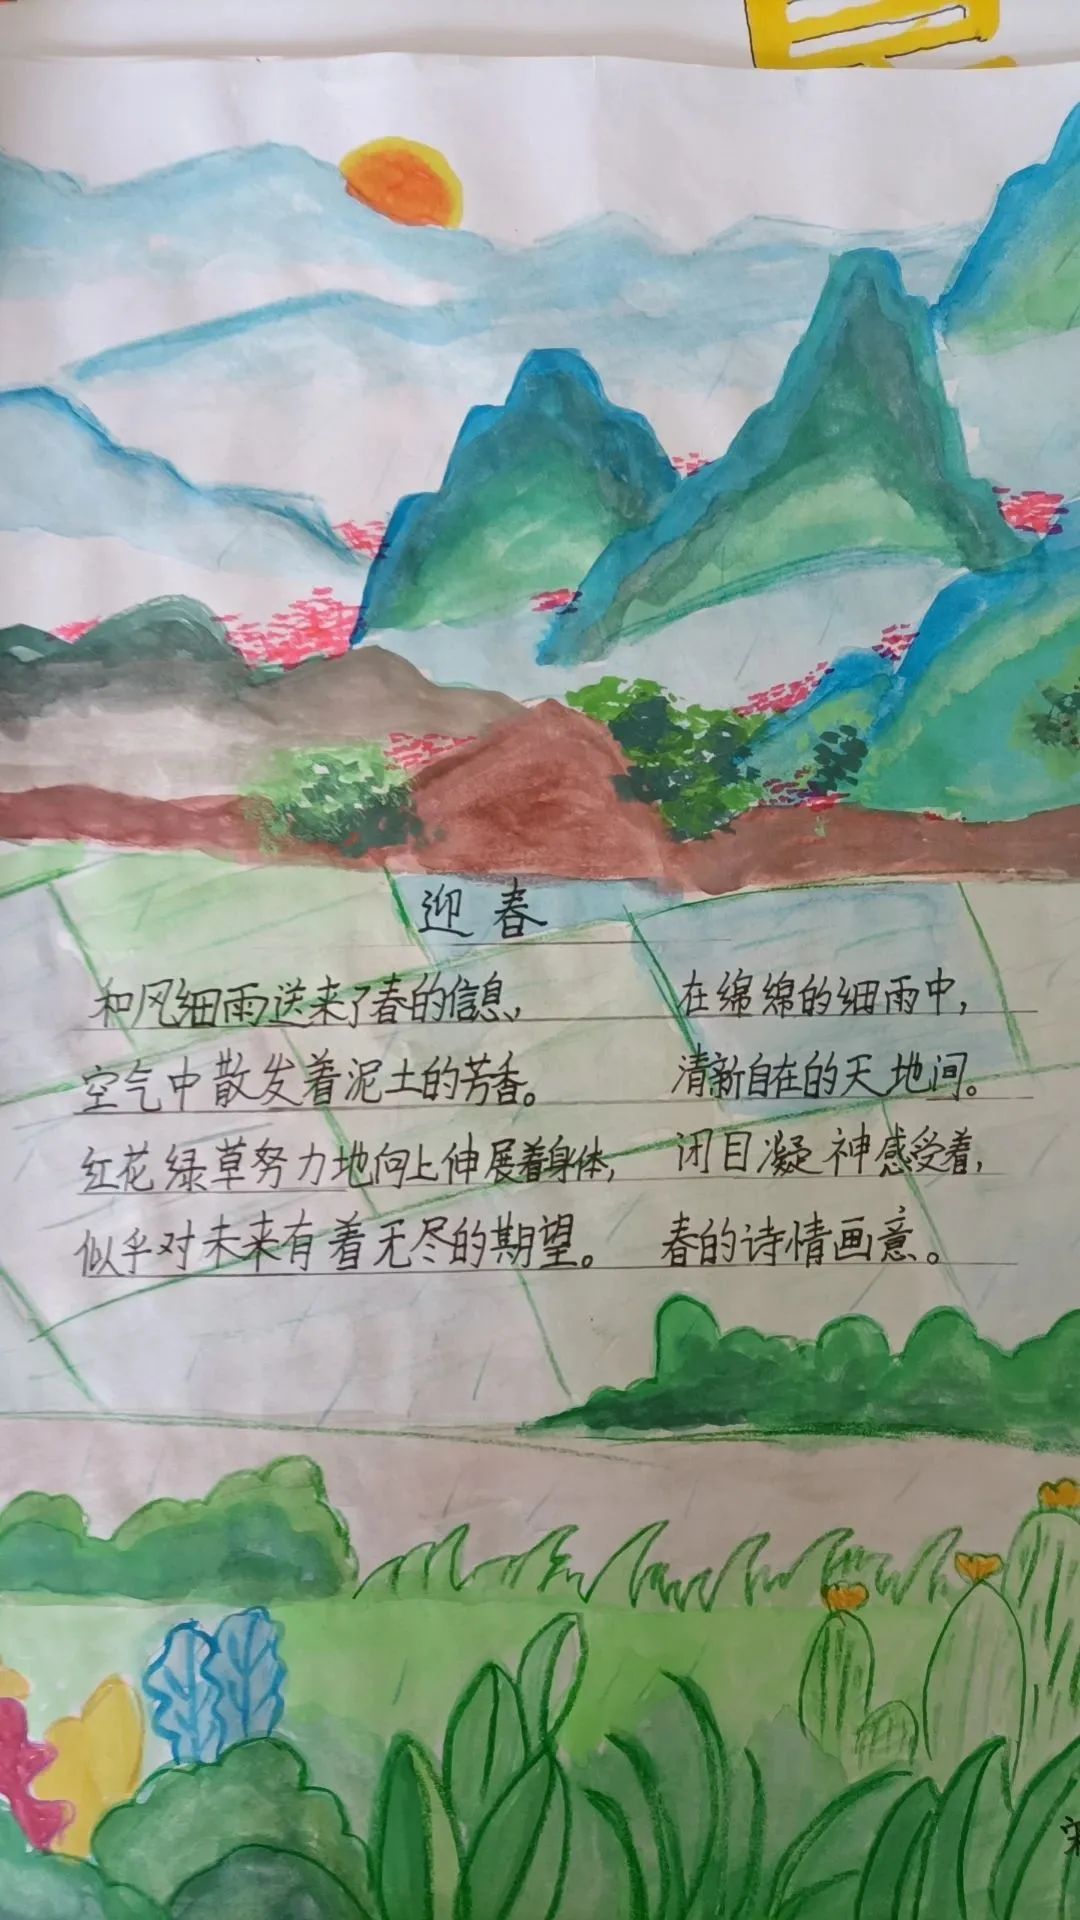 迎春
和风细雨送来了春的信息，
空气中散发着泥土的芳香。
红花绿草努力地向上伸展着身体，
似乎对未来有着无尽的期望。
在绵绵的细雨中，
清新自在的天地间。
闭目凝神感受着，
春的诗情画意。